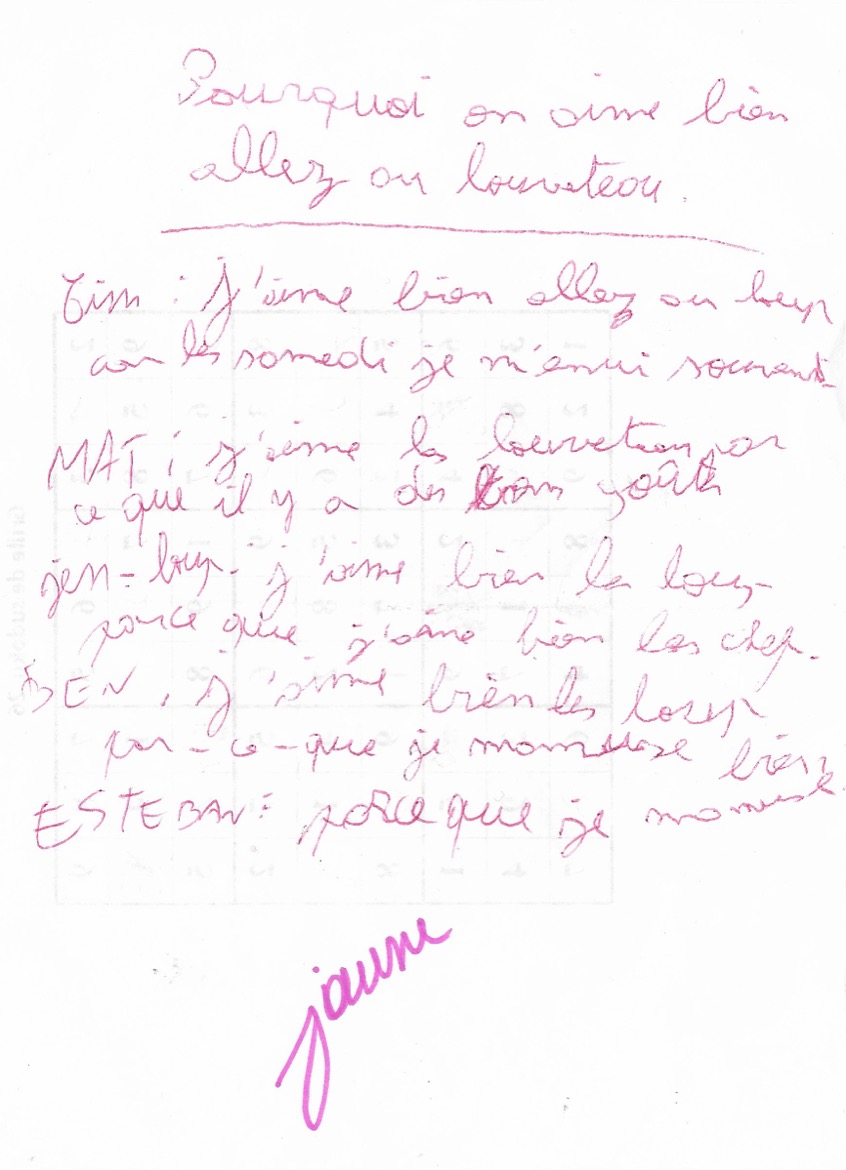 Pourquoi on aime bien
allez au louveteau.
Tim : j'aime bien allez au loup
car les samedi je m'ennui souvent
MAT : j'aime les louveteau par
ce que il y a des bons goûts
jean-loup. j'aime bien les loup
parce que j'aime bien les chef.
BEN, j'aime bien les loup
par-ce-que je mamuse bien
ESTEBAN : parce que je mamuse.
jaune